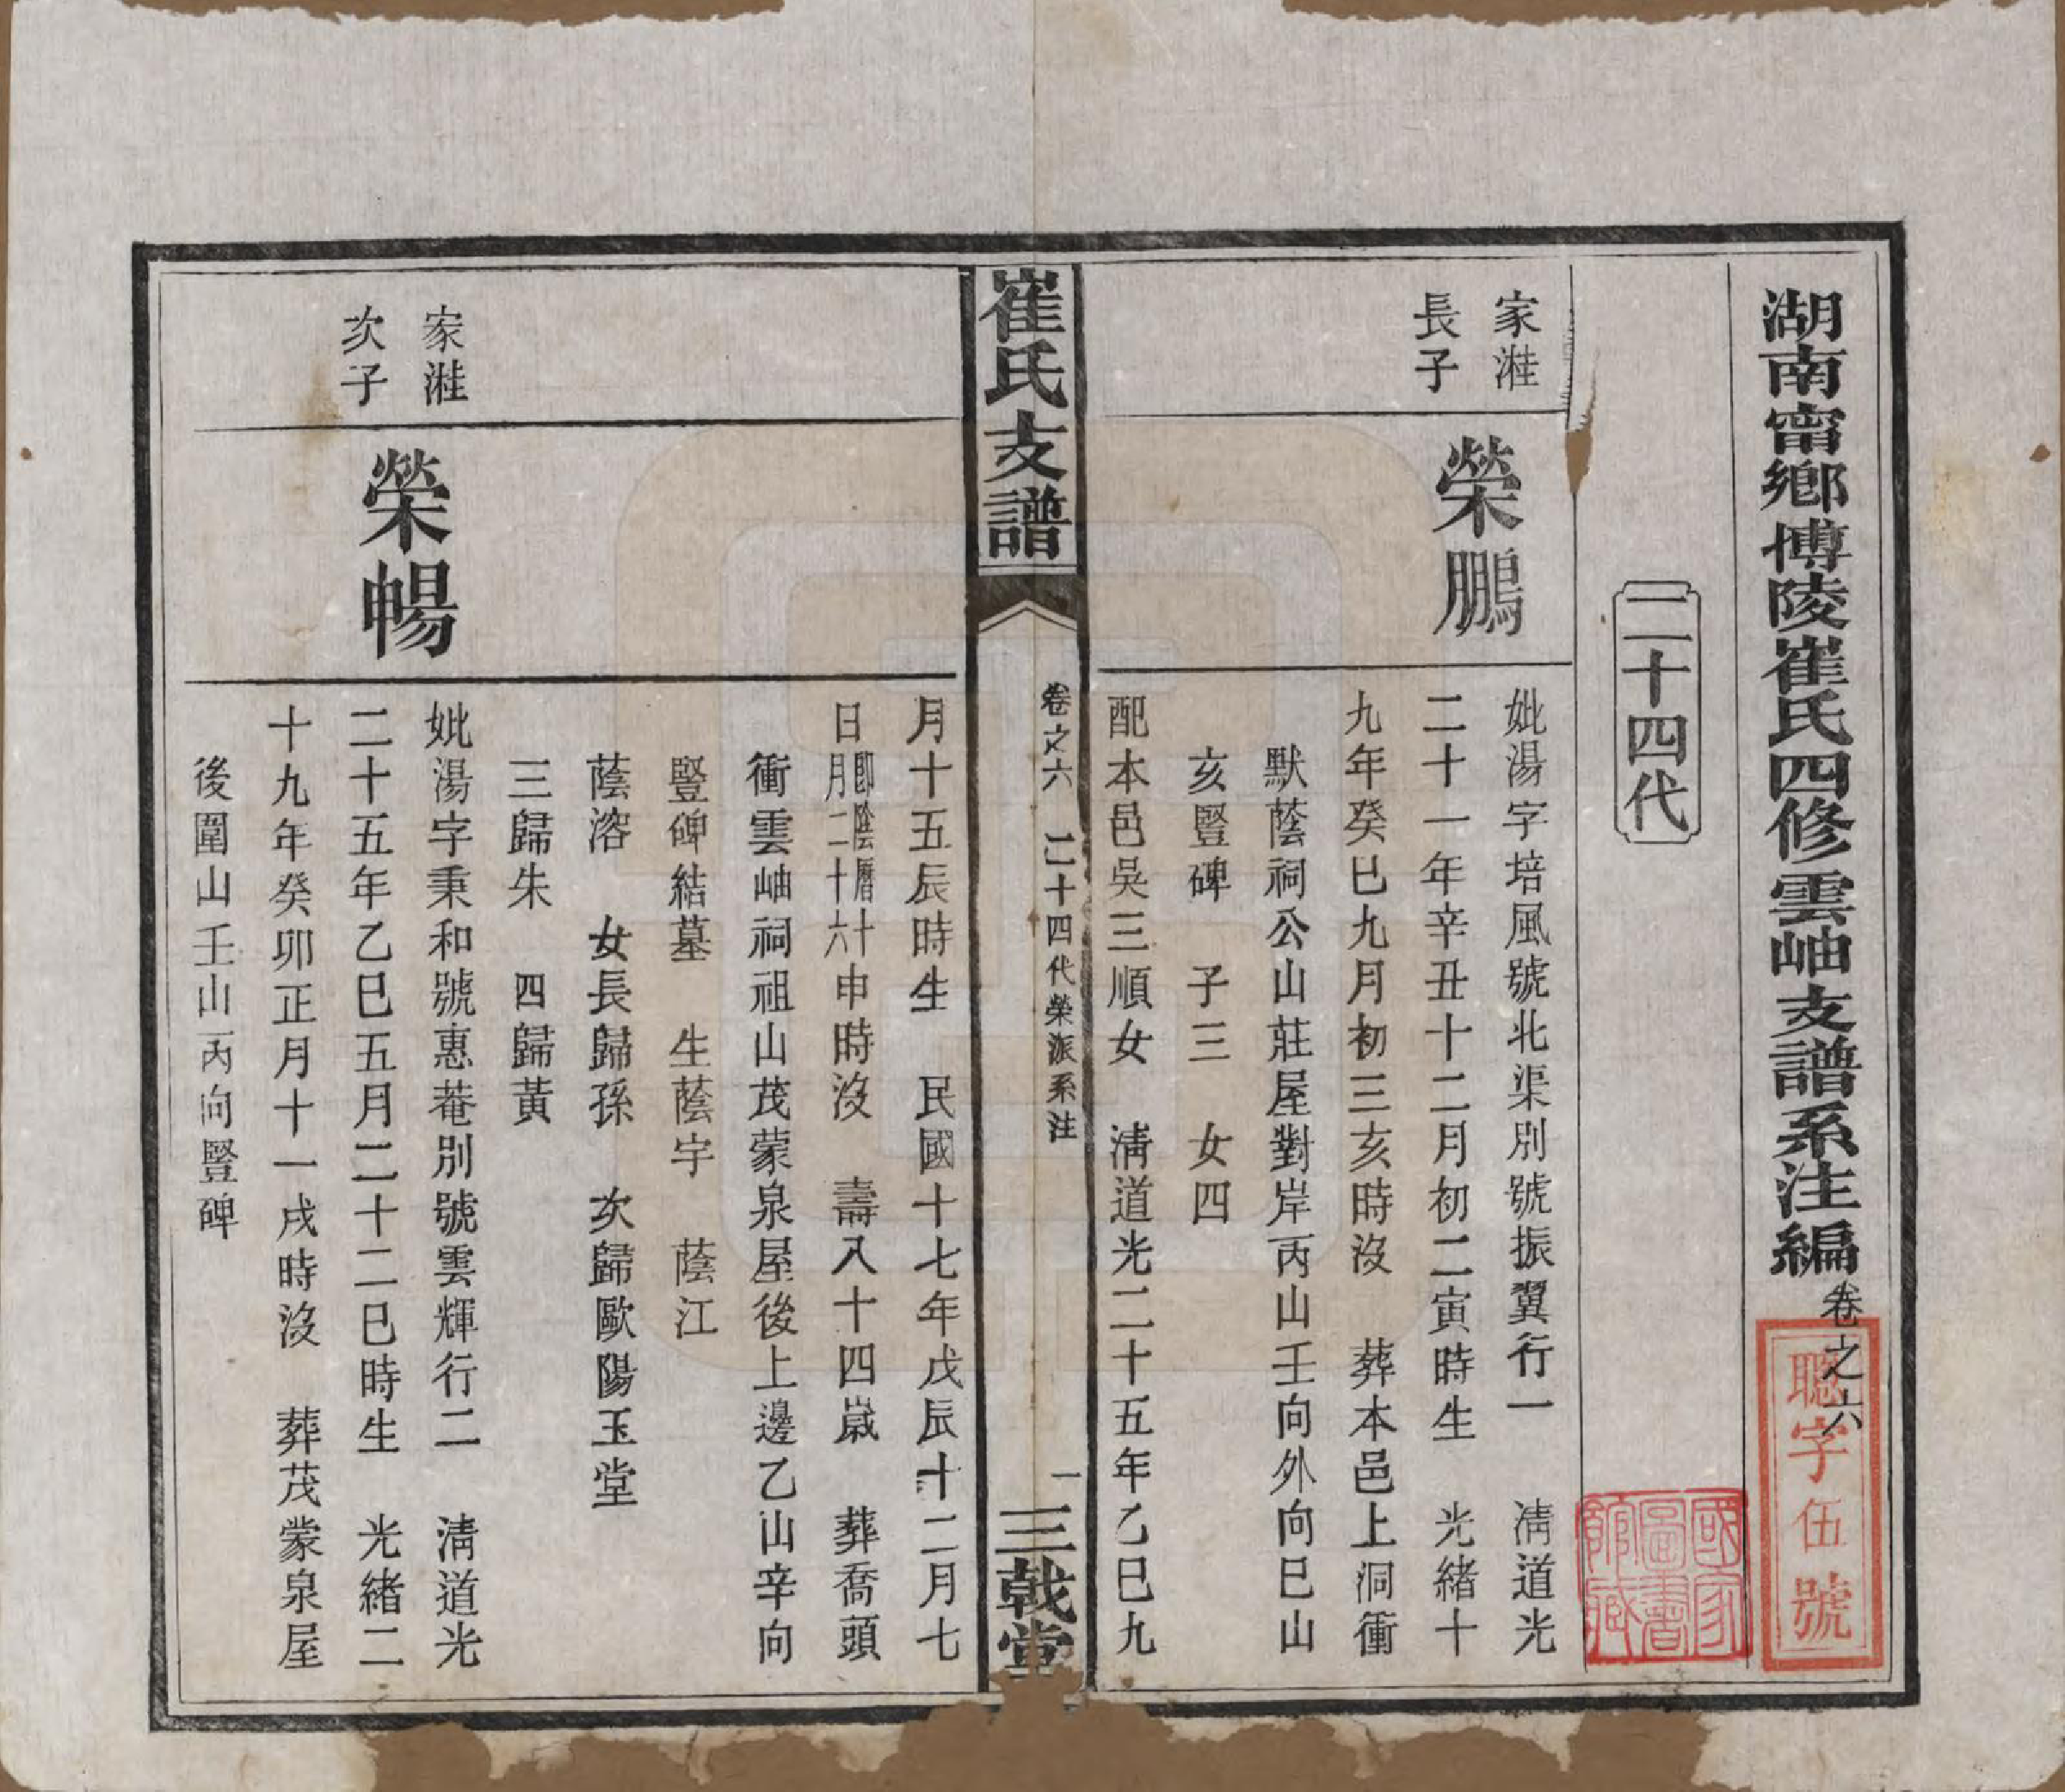 湖南甯鄉博陵崔氏四修雲岫支譜系注編卷之六
聰字伍號
國家圖書館藏
二十四代
家溎
長子
榮鵬
妣湯字培風號北渠別號振翼行一　清道光
二十一年辛丑十二月初二寅時生　光緒十
九年癸巳九月初三亥時沒　葬本邑上洞衝
默蔭祠公山莊屋對岸丙山壬向外向巳山
亥豎碑　子三　女四
配本邑吳三順女　清道光二十五年乙巳九
崔氏支譜
卷之六　二十四代榮派系注
一
三戟堂
月十五辰時生　民國十七年戊辰十二月七
日即陰曆十月二十六申時沒　壽八十四歲　葬喬頭
衝雲岫祠祖山茂蒙泉屋後上邊乙山辛向
豎碑結墓　生蔭宇　蔭江
蔭溶　女長歸孫　次歸歐陽玉堂
三歸朱　四歸黃
家溎
次子
榮暢
妣湯字秉和號惠菴別號雲輝行二　清道光
二十五年乙巳五月二十二巳時生　光緒二
十九年癸卯正月十一戌時沒　葬茂蒙泉屋
後圍山壬山丙向豎碑